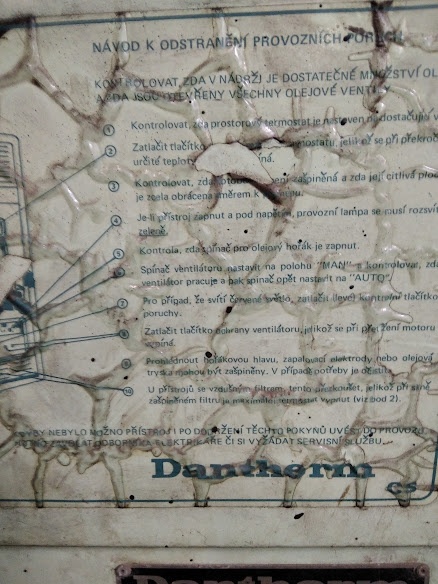 NÁVOD K ODSTRANĚNÍ PROVOZNÍCH PORUCH
KONTROLOVAT, ZDA V NÁDRŽI JE DOSTATEČNÉ MNOŽSTVÍ
A ZDA JSOU OTEVŘENY VŠECHNY OLEJOVÉ VENTILY
1 Kontrolovat, zda prostorový termostat je nastaven na dostačující
2 Zatlačit tlačítko termostatu, jelikož se při
určité teplotě
3 Kontrolovat, zda fotobuňka není zašpiněna a zda její citlivá
je zcela obrácena směrem k
4 Je-li přístroj zapnut a pod napětím, provozní lampa se musí
zeleně.
5 Kontrola, zda spínač pro olejový hořák je zapnut.
6 Spínač ventilátoru nastavit na polohu "MAN" a kontrolovat, zda
ventilátor pracuje a pak spínač opět nastavit na "AUTO".
7 Pro případ, že svítí červené světlo, zatlačit (levé) kontrolní tlačítko
poruchy.
8 Zatlačit tlačítko ochrany ventilátoru, jelikož se při přetížení motoru
vypíná.
9 Prohlédnout hořákovou hlavu, zapalovací elektrody nebo olejová
tryska mohou být zašpiněny. V případě potřeby je očistit.
10 U přístrojů se vzdušným filtrem, tento přezkoušet, jelikož při silně
zašpiněném filtru je maximální termostat vypnut (viz bod 2).
BY NEBYLO MOŽNO PŘÍSTROJ I PO DODRŽENÍ TĚCHTO POKYNŮ UVÉST DO PROVOZU
ZAVOLAT ODBORNÍKA ELEKTRIKÁŘE ČI SI VYŽÁDAT SERVISNÍ SLUŽBU.
Dantherm
cs
Dantherm